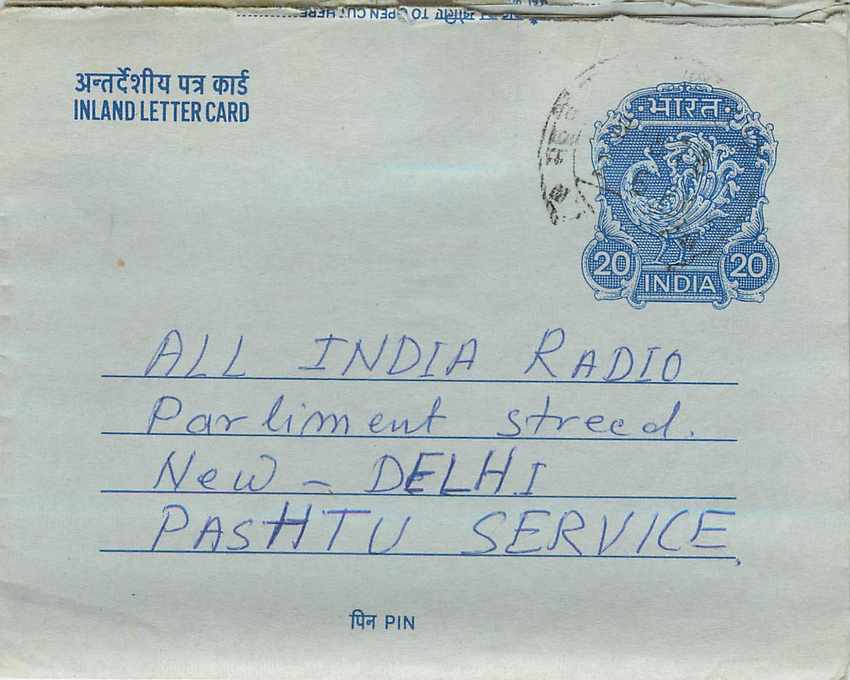 TO OPEN CUT HERE
अन्तर्देशीय पत्र कार्ड
INLAND LETTER CARD
भारत
20 INDIA 20
ALL INDIA RADIO
Parliment streed.
New - DELHI
PASHTU SERVICE,
पिन PIN